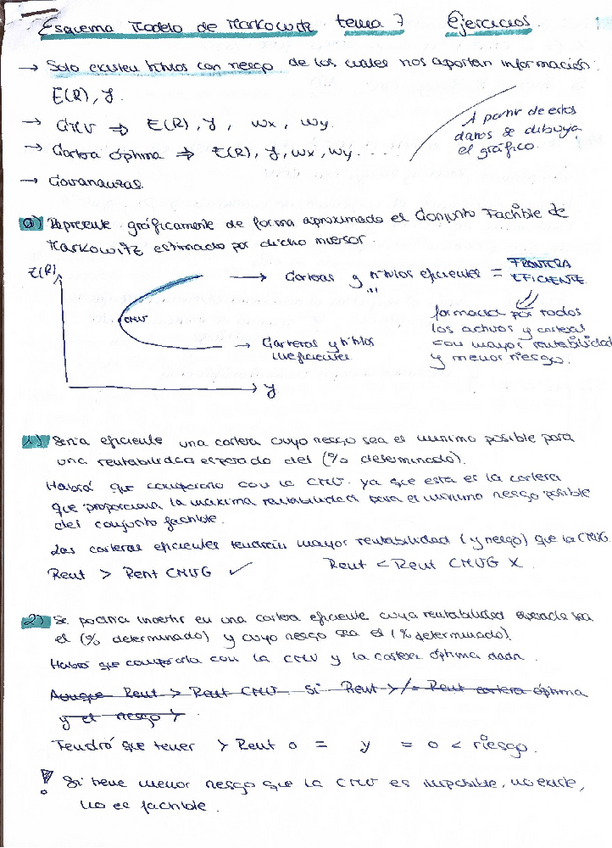 Esquema Modelo de Markowitz tema 7 Ejercicios
→ Solo existen títulos con riesgo de los cuales nos aportan información:
E(R), γ.
→ CMV ⇒ E(R), γ, wx, wy.
→ Cartera óptima ⇒ E(R), γ, wx, wy. . . .
→ Covarianzas
A partir de estos
datos se dibuja
el gráfico.
0) Represente gráficamente de forma aproximada el Conjunto Factible de
Markowitz estimado por dicho inversor.
E(R)
CMV
→ Carteras y títulos eficientes = FRONTERA
EFICIENTE
→ Carteras y títulos
ineficientes
formada por todos
los activos y carteras
con mayor rentabilidad
y menor riesgo.
γ
1) Sería eficiente una cartera cuyo riesgo sea el mínimo posible para
una rentabilidad esperada del (% determinado).
Habrá que compararlo con la CMV. ya que esta es la cartera
que proporciona la máxima rentabilidad para el mínimo riesgo posible
del conjunto factible.
Las carteras eficientes tendrán mayor rentabilidad (y riesgo) que la CMVG.
Rent > Rent CMVG ✓ Rent < Rent CMVG X
2) Se podría invertir en una cartera eficiente cuya rentabilidad esperada sea
el (% determinado) y cuyo riesgo sea el (% determinado).
Habrá que compararla con la CMV y la cartera óptima dada.
Aunque Rent > Rent CMV si Rent >/= Rent cartera óptima
y el riesgo >
Tendrá que tener > Rent o = y = o < riesgo.
! Si tiene menor riesgo que la CMV es imposible, no existe,
no es factible.